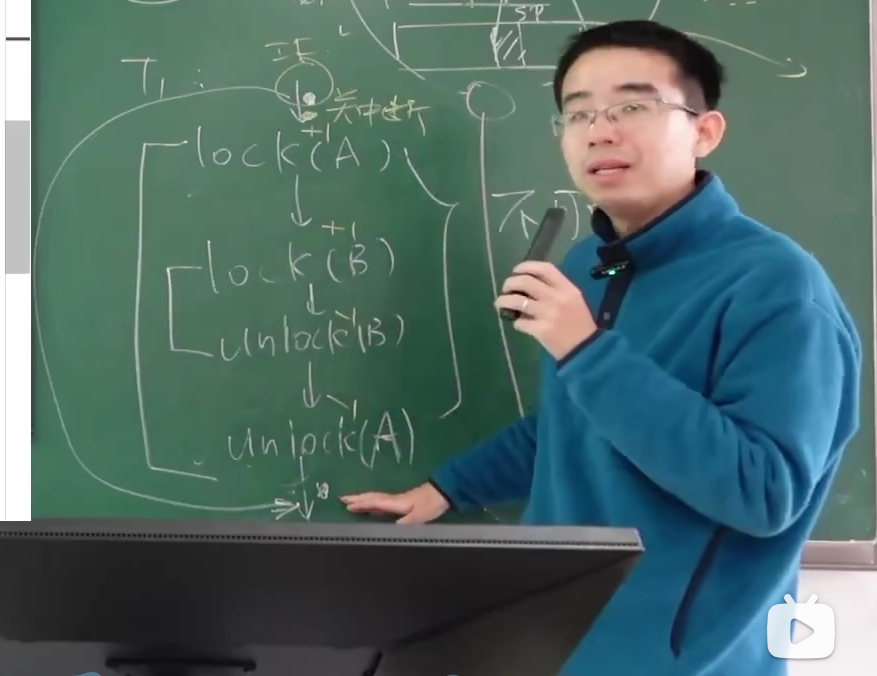 SP
T₁:
关中断
+1
lock(A)
不可
+1
lock(B)
-1
unlock(B)
-1
unlock(A)